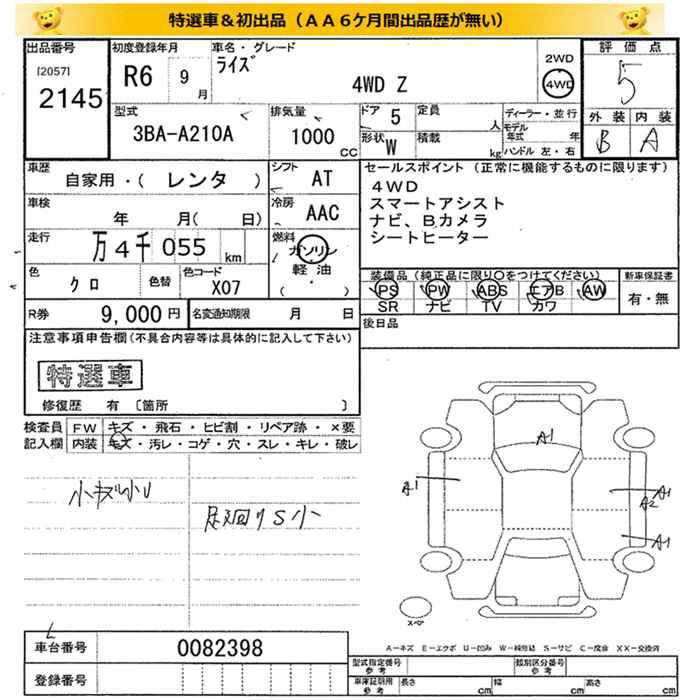 特選車＆初出品（ＡＡ６ケ月間出品歴が無い）
出品番号 初度登録年月 車名・グレード 評価点
[2057] 2145
R6 9 月
ライズ
4WD Z
2WD
4WD
5
外装 内装
B A
型式 排気量 ドア 定員 ディーラー・並行
3BA-A210A 1000 CC 5 人 モデル年式 年
形状 W 積載 kg ハンドル 左・右
車歴 シフト セールスポイント（正常に機能するものに限ります）
自家用・（ レンタ ） AT
4WD
スマートアシスト
ナビ、B.カメラ
シートヒーター
車検 年 月( 日) 冷房 AAC
走行 万4千055 km 燃料 ガソリン
軽油
( ・ )
色 クロ 色替 色コード X07
装備品（純正品に限り○をつけてください） 新車保証書
PS PW ABS エアB AW 有・無
SR ナビ TV カワ
R券 9,000円 名変通知期限 月 日
後日品
注意事項申告欄（不具合内容等は具体的に記入して下さい）
特選車
修復歴 有 〔箇所 〕
検査員 FW キズ・飛石・ヒビ割・リペア跡・×要
記入欄 内装 キズ・汚レ・コゲ・穴・スレ・キレ・破レ
小キズ小U
足廻りS小
A1
A1
A1
A2
A1
スペア
車台番号 0082398
A－キズ E－エクボ U－凹み W－補修跡 S－サビ C－腐食 XX－交換済
登録番号
型式指定番号 参考 類別区分番号 参考
車庫証明用 参考 長さ cm 幅 cm 高さ cm